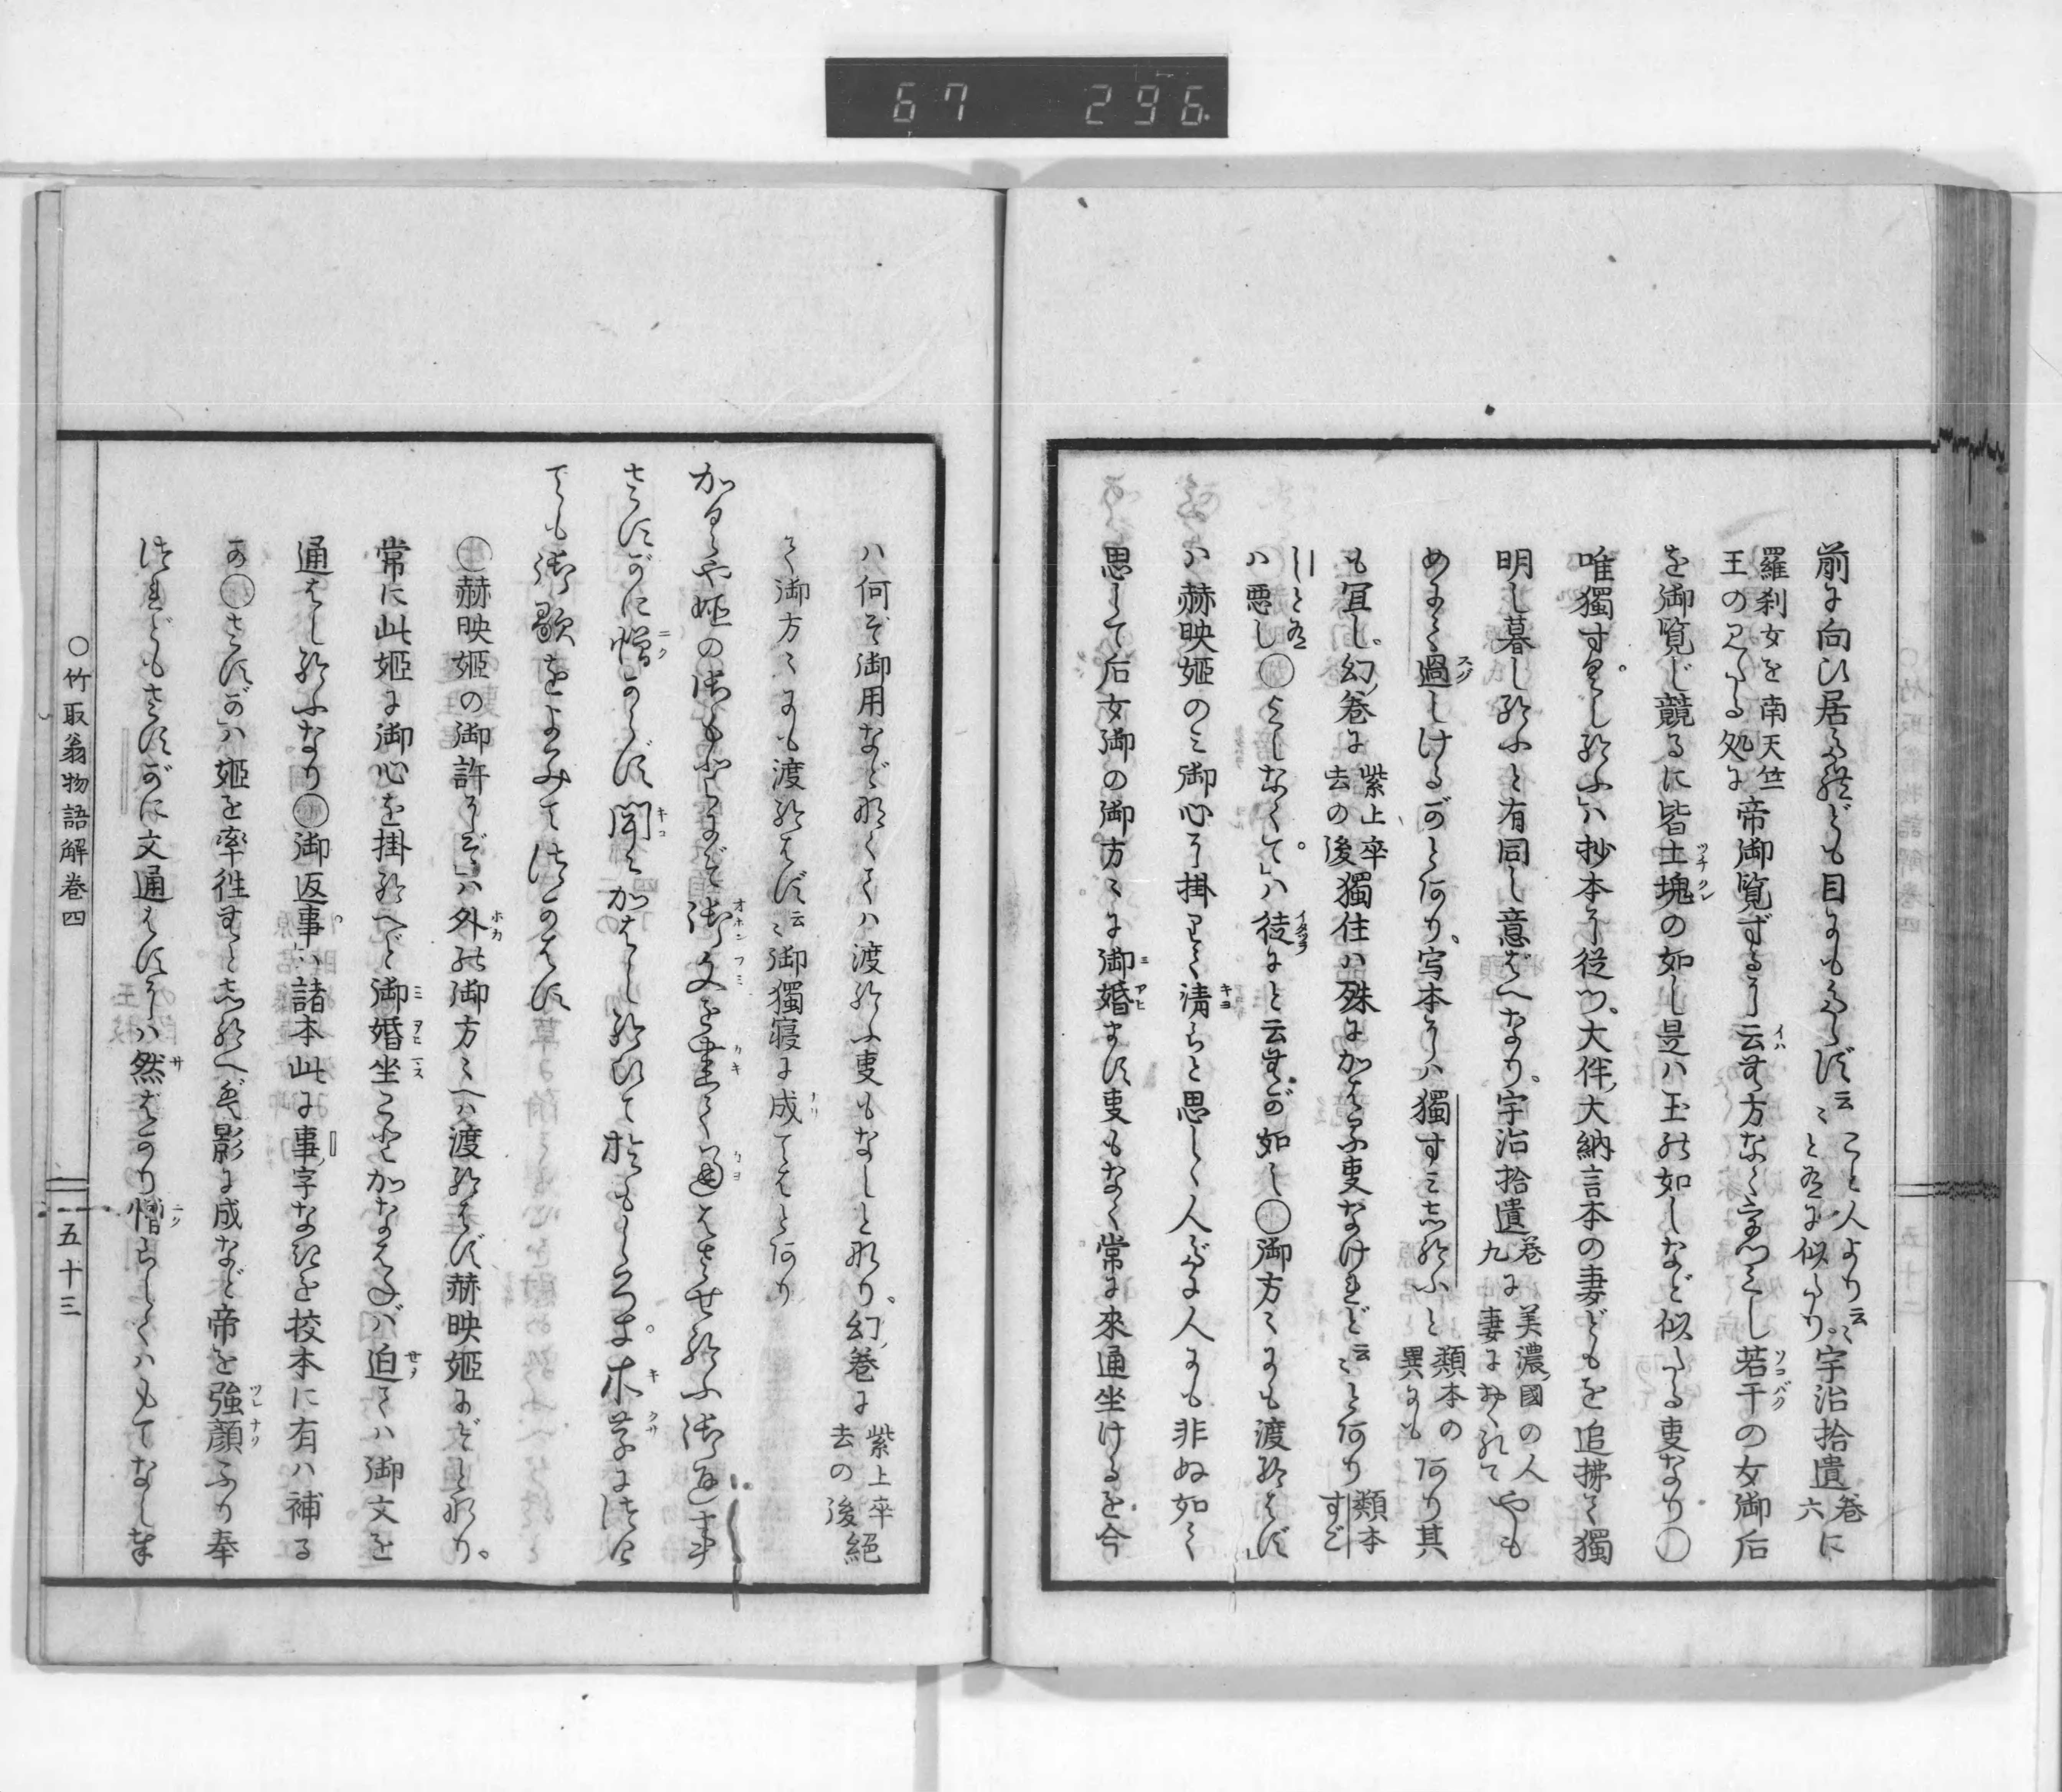 67 296
前に向ひ居る然ども目にも多らず云〻こと人より云〻と有に似たり。宇治拾遺巻六に
羅刹女を南天竺王の見たる処に帝御覧ずるに云む方なく宇つくし若干の女御后
を御覧じ競るに皆土塊の如し是ハ玉の如しなど似たる事なり〇
唯獨すぐし給ふハ抄本に従つ、大伴大納言本の妻どもを追拂て獨
明し暮し給ふと有同し意ばへなり。宇治拾遺巻九に美濃國の人妻におくれてやも
めにて過しけるがとあり。写本にハ獨すミ志給ふと類本の異にもあり其
も宜し。幻巻に紫上卒去の後獨住ハ殊にかはる事なけれど云〻とあり類本すご
しと有ハ悪し〇よしなくて。ハ徒にと云むが如し〇御方〻にも渡給はず
ハ赫映姫のミ御心に掛りて清らと思しゝ人〻が人にも非ぬ如く
思して后女御の御方〻に御婚ます事もなく常に來通坐けるを今
ハ何ぞ御用など那くてハ渡給ふ事もなしと那り。幻巻に紫上卒去の後絶
て御方〻にも渡給はず云〻御獨寝に成てはとあり
かぐや姫の御もとにぞ御文を書て通はさせ給ふ御返事
さすがに憎からず聞えかはし給ひておもしろき。木草につけ
ても御歌をよみてつかはす
〇赫映姫の御許にぞハ外の御方〻へハ渡給はず赫映姫にぞと那り。
常に此姫に御心を掛給へど御婚坐こともかなはねバ迫てハ御文を
通はし給ふなり〇御返事ハ諸本此に事字なきを挍本に有ハ補る
か〇さすがハ姫を率往むと志給へど影に成など帝を強顔ふり奉
つれどもさすがに文通はすにハ然ばかり憎らしくハもてなし奉
〇竹取翁物語解巻四
五十三